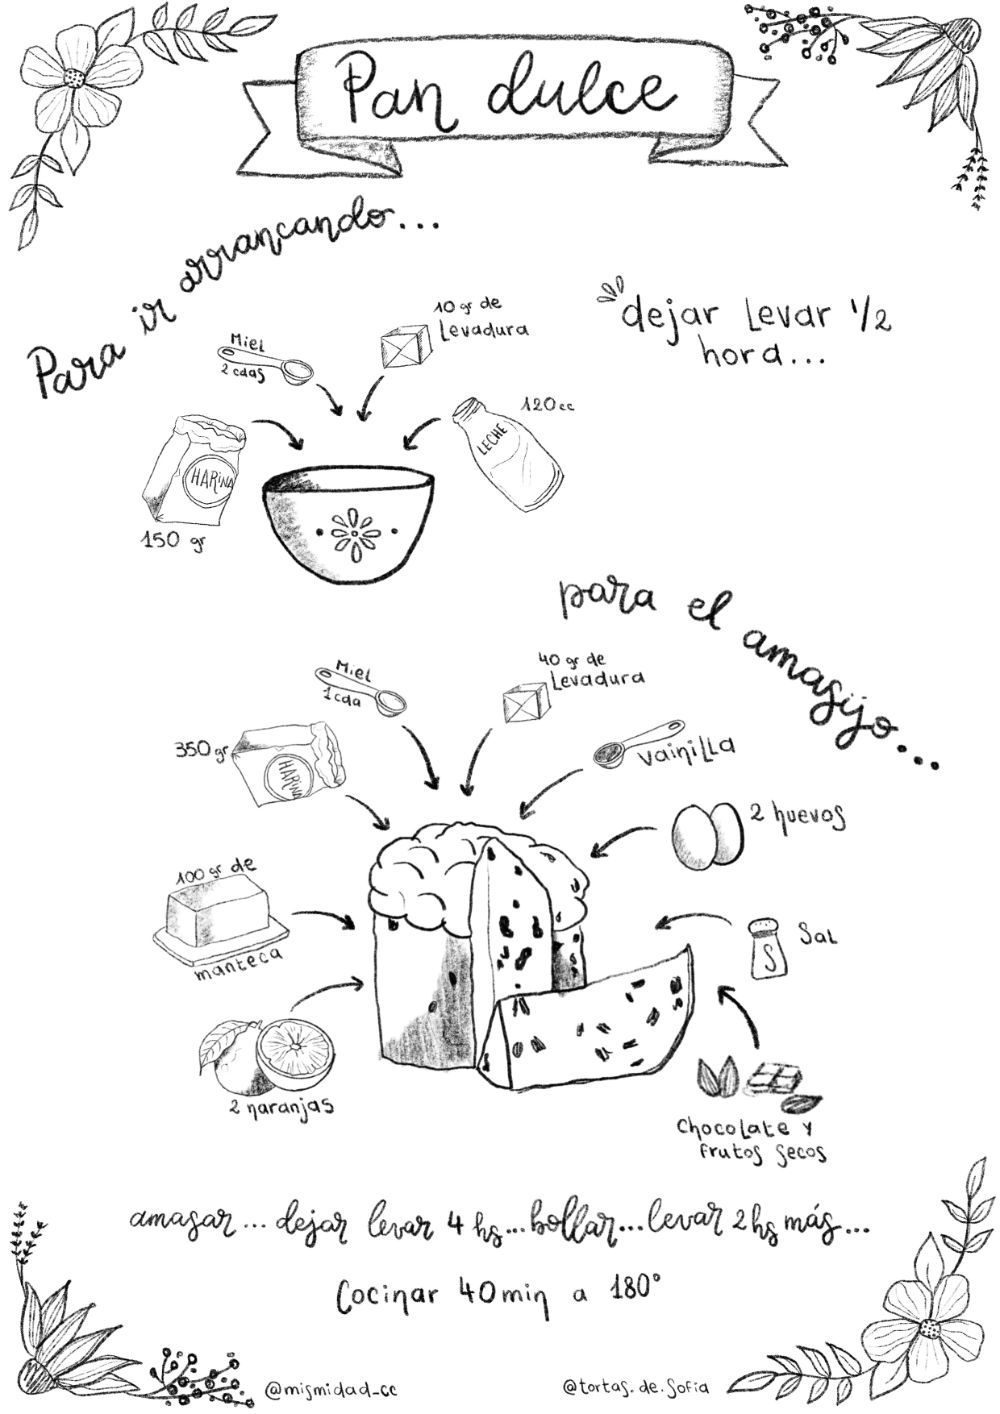 Pan dulce
Para ir arrancando...
Miel
2 cdas
10 gr de
Levadura
120cc
LECHE
HARINA
150 gr
dejar Levar 1/2
hora...
para el amasijo...
Miel
1 cda
40 gr de
Levadura
350 gr
HARINA
vainilla
2 huevos
100 gr de
manteca
S
Sal
2 naranjas
Chocolate y
frutos secos
amasar... dejar levar 4 hs... bollar... levar 2hs más...
Cocinar 40min a 180°
@mismidad_cc
@tortas.de.sofia